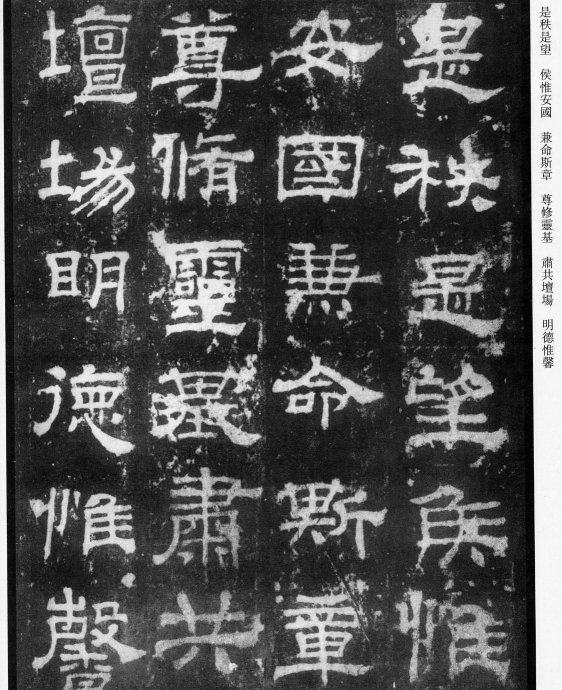 是秩是望　侯惟安國　兼命斯章　尊修靈基　肅共壇場　明德惟馨
是秩是望侯惟
安國兼命斯章
尊脩靈基肅共
壇場明德惟馨